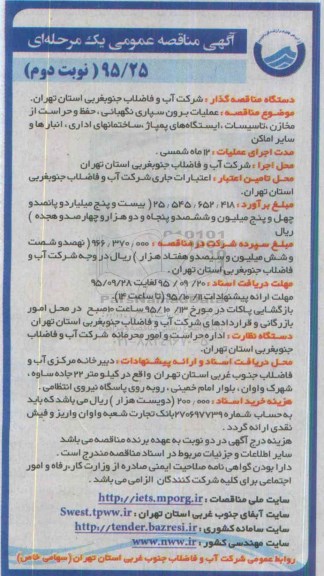 آگهی مناقصه عمومی یک مرحله‌ای
۹۵/۲۵ ( نوبت دوم )
دستگاه مناقصه گذار : شرکت آب و فاضلاب جنوبغربی استان تهران.
موضوع مناقصه : عملیات برون سپاری نگهبانی ، حفظ و حراست از
مخازن ،تاسیسات ، ایستگاههای پمپاژ ،ساختمانهای اداری ، انبار ها و
سایر اماکن
مدت اجرای عملیات : ۱۲ ماه شمسی .
محل اجرا : شرکت آب و فاضلاب جنوبغربی استان تهران
محل تامین اعتبار : اعتبارات جاری شرکت آب و فاضلاب جنوبغربی
استان تهران.
مبلغ برآورد : ۲۵/۵۴۵/۶۵۲/۴۱۸ ( بیست و پنج میلیارد و پانصدو
چهل و پنج میلیون و ششصدو پنجاه و دو هزار و چهارصدو هجده )
ریال
مبلغ سپرده شرکت در مناقصه : ۹۶۶/۳۷۰/۰۰۰ ( نهصدو شصت
و شش میلیون و سیصدو هفتاد هزار ) ریال در وجه شرکت آب و
فاضلاب جنوبغربی استان تهران .
مهلت دریافت اسناد : ۹۵/۰۹/۲۰ لغایت ۹۵/۰۹/۲۸
مهلت ارائه پیشنهادات ۹۵/۱۰/۱۱ (تا ساعت ۱۴).
بازگشایی پاکات در مورخ ۹۵/۱۰/۱۳ ساعت ۱۰صبح در محل امور
بازرگانی و قراردادهای شرکت آب و فاضلاب جنوبغربی استان تهران
دستگاه نظارت : اداره حراست و امور محرمانه شرکت آب و فاضلاب
جنوبغربی استان تهران.
محل دریافت اسناد و ارائه پیشنهادات : دبیرخانه مرکزی آب و
فاضلاب جنوب غربی استان تهران واقع در کیلومتر ۲۲ جاده ساوه ،
شهرک واوان ، بلوار امام خمینی ، روبه روی پاسگاه نیروی انتظامی .
هزینه خرید اسناد : ۲۰۰/۰۰۰ (دویست هزار ) ریال می باشد که باید
به حساب شماره ۲۷۰۶۹۷۷۳۹ بانک تجارت شعبه واوان واریز و فیش
نقدی ارائه گردد .
هزینه درج آگهی در دو نوبت به عهده برنده مناقصه می باشد
سایر اطلاعات و جزئیات مربوط در اسناد مناقصه مندرج است .
دارا بودن گواهی نامه صلاحیت ایمنی صادره از وزارت کار،رفاه و امور
اجتماعی برای کلیه شرکت کنندگان الزامی می باشد .
سایت ملی مناقصات : http://iets.mporg.ir
سایت آبفای جنوب غربی استان تهران : Swest.tpww.ir
سایت سامانه کشوری : http://tender.bazresi.ir
سایت مهندسی کشور : www.nww.ir
روابط عمومی شرکت آب و فاضلاب جنوب غربی استان تهران (سهامی خاص)